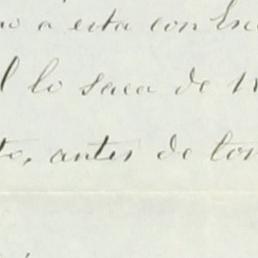 a esta con
lo saca de
antes de